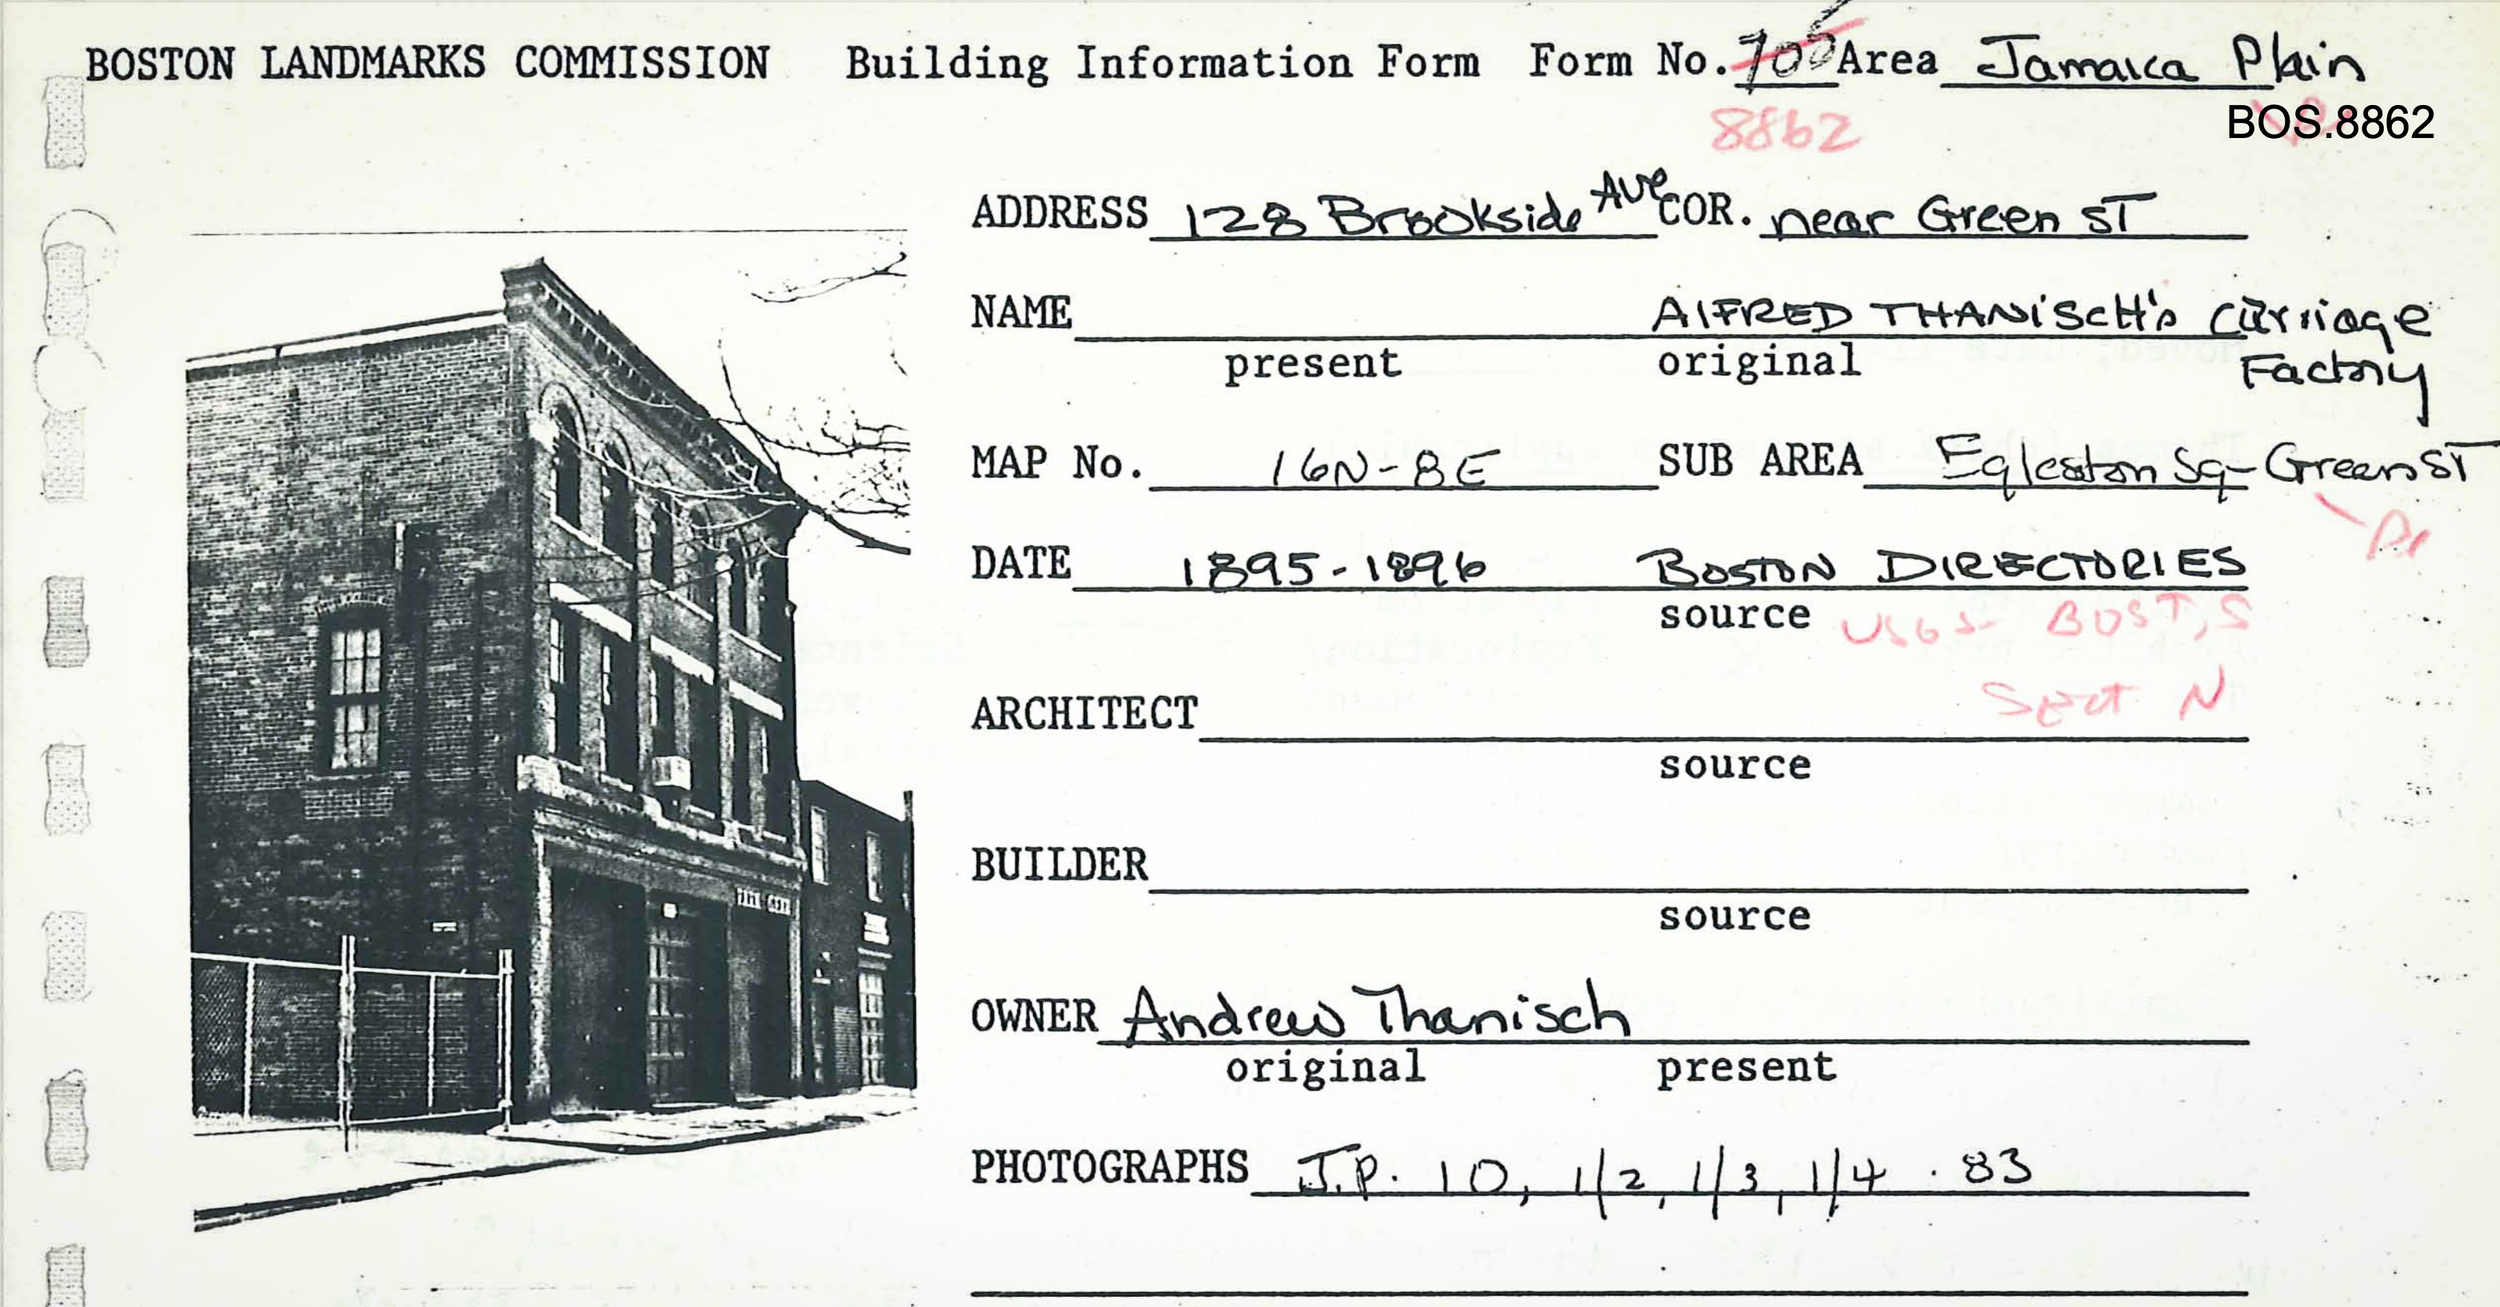 BOSTON LANDMARKS COMMISSION Building Information Form Form No. 705 Area Jamaica Plain
8862 BOS.8862
ADDRESS 128 Brookside Ave COR. near Green ST
NAME ALFRED THANiSCH's Carriage
present original Factory
MAP No. 16N-8E SUB AREA Egleston Sq-Green ST
DATE 1895-1896 BOSTON DIRECTORIES
source USGS- BOST, S
Sect N
ARCHITECT
source
BUILDER
source
OWNER Andrew Thanisch
original present
PHOTOGRAPHS J.P. 10, 1/2, 1/3, 1/4 . 83